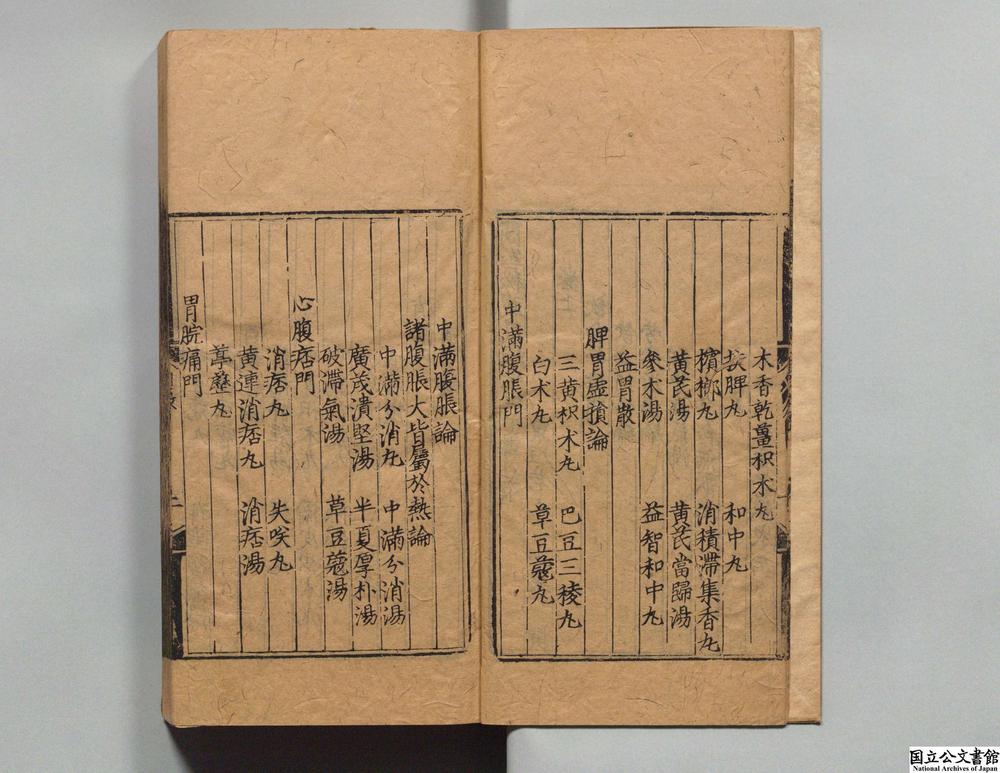 木香乾薑枳朮丸
扶脾丸 和中丸
檳榔丸 消積滯集香丸
黄芪湯 黄芪當歸湯
參朮湯 益智和中丸
益胃散
脾胃虚損論
三黄枳朮丸 巴豆三稜丸
白朮丸 草豆蔻丸
中滿腹脹門
中滿腹脹論
諸腹脹大皆屬於熱論
中滿分消丸 中滿分消湯
廣茂潰堅湯 半夏厚朴湯
破滯氣湯 草豆蔻湯
心腹痞門
消痞丸 失咲丸
黄連消痞丸 消痞湯
葶藶丸
胃脘痛門
二
国立公文書館
National Archives of Japan